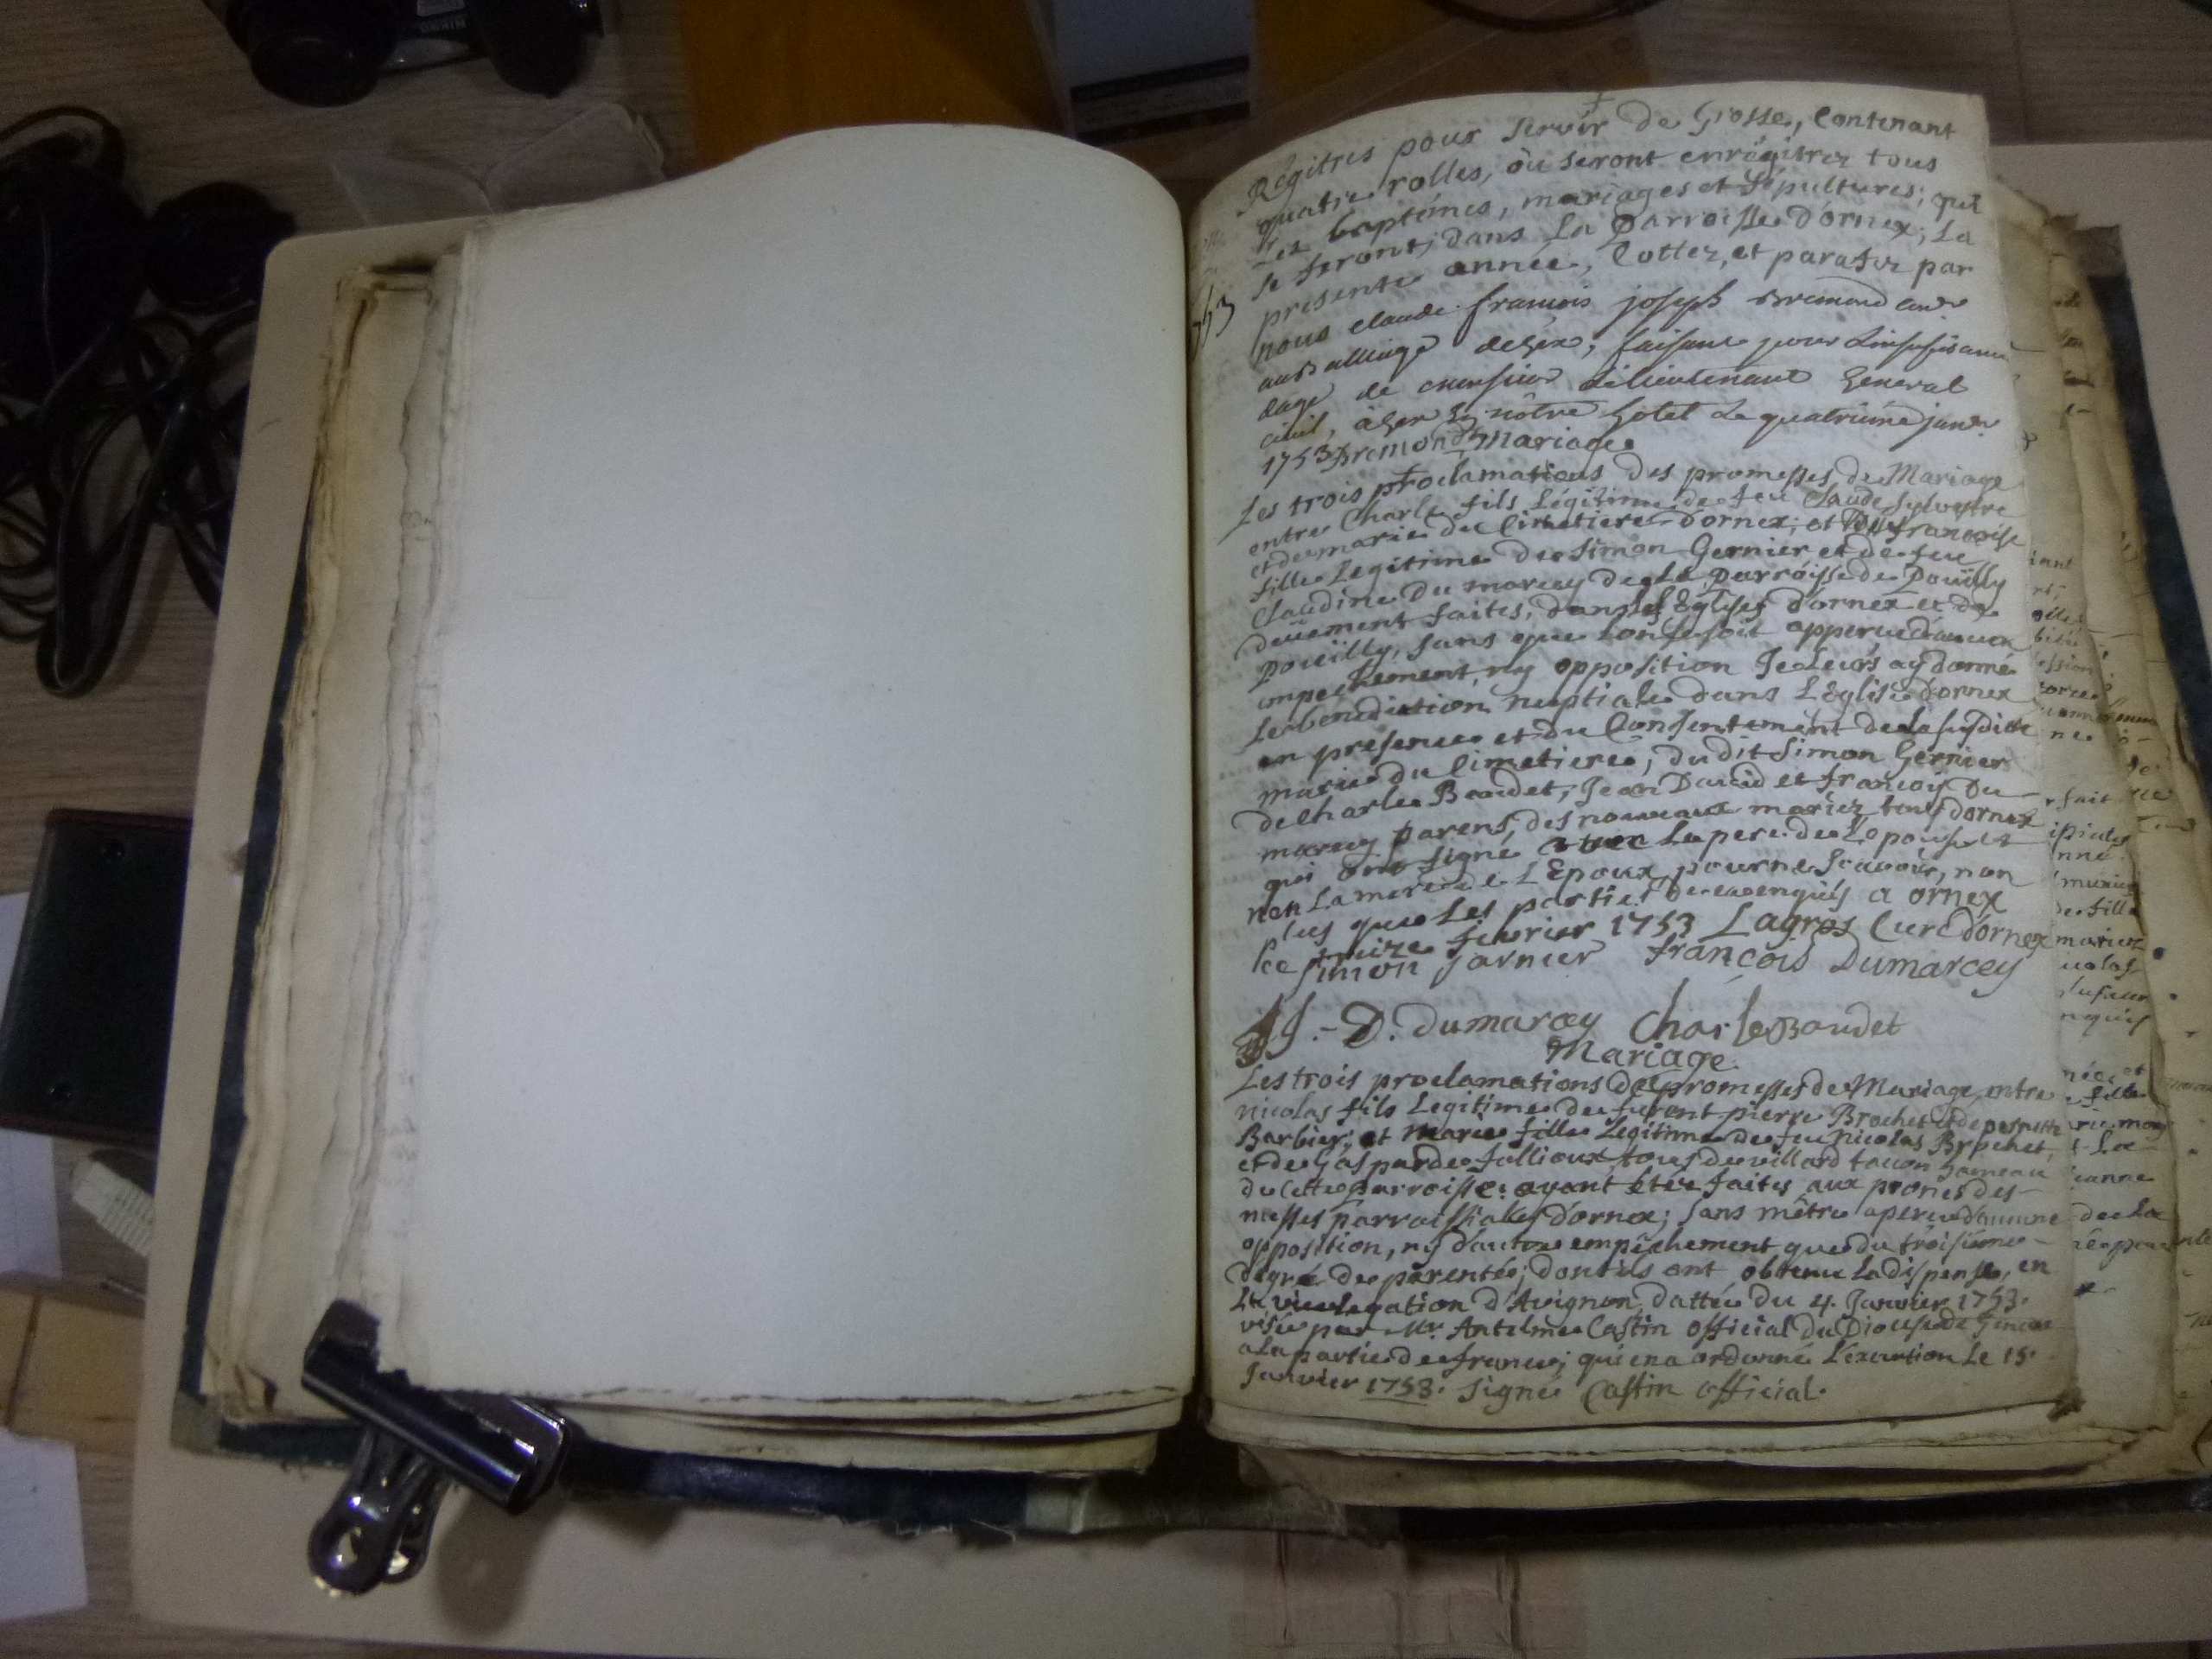 Régitres pour servir de Grosse, Contenant
quatre rolles, où seront enrégitrez tous
Les baptémes, mariages et sépultures; qui
se feront; dans La Parroisse D'ornex; La
presente année, Cottez, et parafez par
nous Claude francois joseph Bremond
au Balliage degex, faisant pour
de monsieur Lelieutenant General
civil, àGex En nôtre hotel Le quatriéme janv.
1753 Bremond
Mariage
Les trois proclamations des promesses de Mariage
entre Charle fils Légitime de feu Claude Sylvestre
et de marie du Cimetiere d'ornex; et francoise
fille Legitime de Simon Gernier et de feu
Claudine Du marcey de La Parroisse de Pouïlly
deuement faites; dans les Eglises d'ornex et de
Pouilly, sans que l'on se soit apperçu d'aucun
empechement, ny opposition Je Leurs ay donné
La bénédiction nuptiale dans L'Eglise d'ornex
en presence et du Consentement de la susditte
marie du Cimetiere, du dit Simon Gernier
de Charle Baudet, Jean David et francoy Du
marcey parens, des nouveaux mariez tous d'ornex
qui ont signé avec Le pere de L'epouse et
non La mere de L'Epoux, pour ne scavoir, non
plus que Les parties de ce enquis a ornex
ce treize février 1753 Lagros Curé d'ornex
simon jarnier francois Dumarcey
J.-D. Dumarcey Charle Baudet
Mariage
Les trois proclamations des promesses de Mariage, entre
nicolas fils Legitime de furent pierre Brochet et de pernette
Barbier; et Marie fille Legitime de feu nicolas Brochet,
et de Gasparde fallioux tous de villard tacon hameau
de Cette parroisse; ayant étez faites aux prones des
messes parroissiales d'ornex; sans m'être aperçu d'aucune
opposition, ny d'autre empêchement que du troisieme
dégré de parentée; dont ils ont obtenu La dispense, en
La vicelegation d'Avignon, dattée du 4. Janvier 1753.
visée par Mr. Antelme Castin official du Diocese de Geneve
a La partie de france; qui en a ordonné L'execution Le 15.
Janvier 1753. signé Castin official.